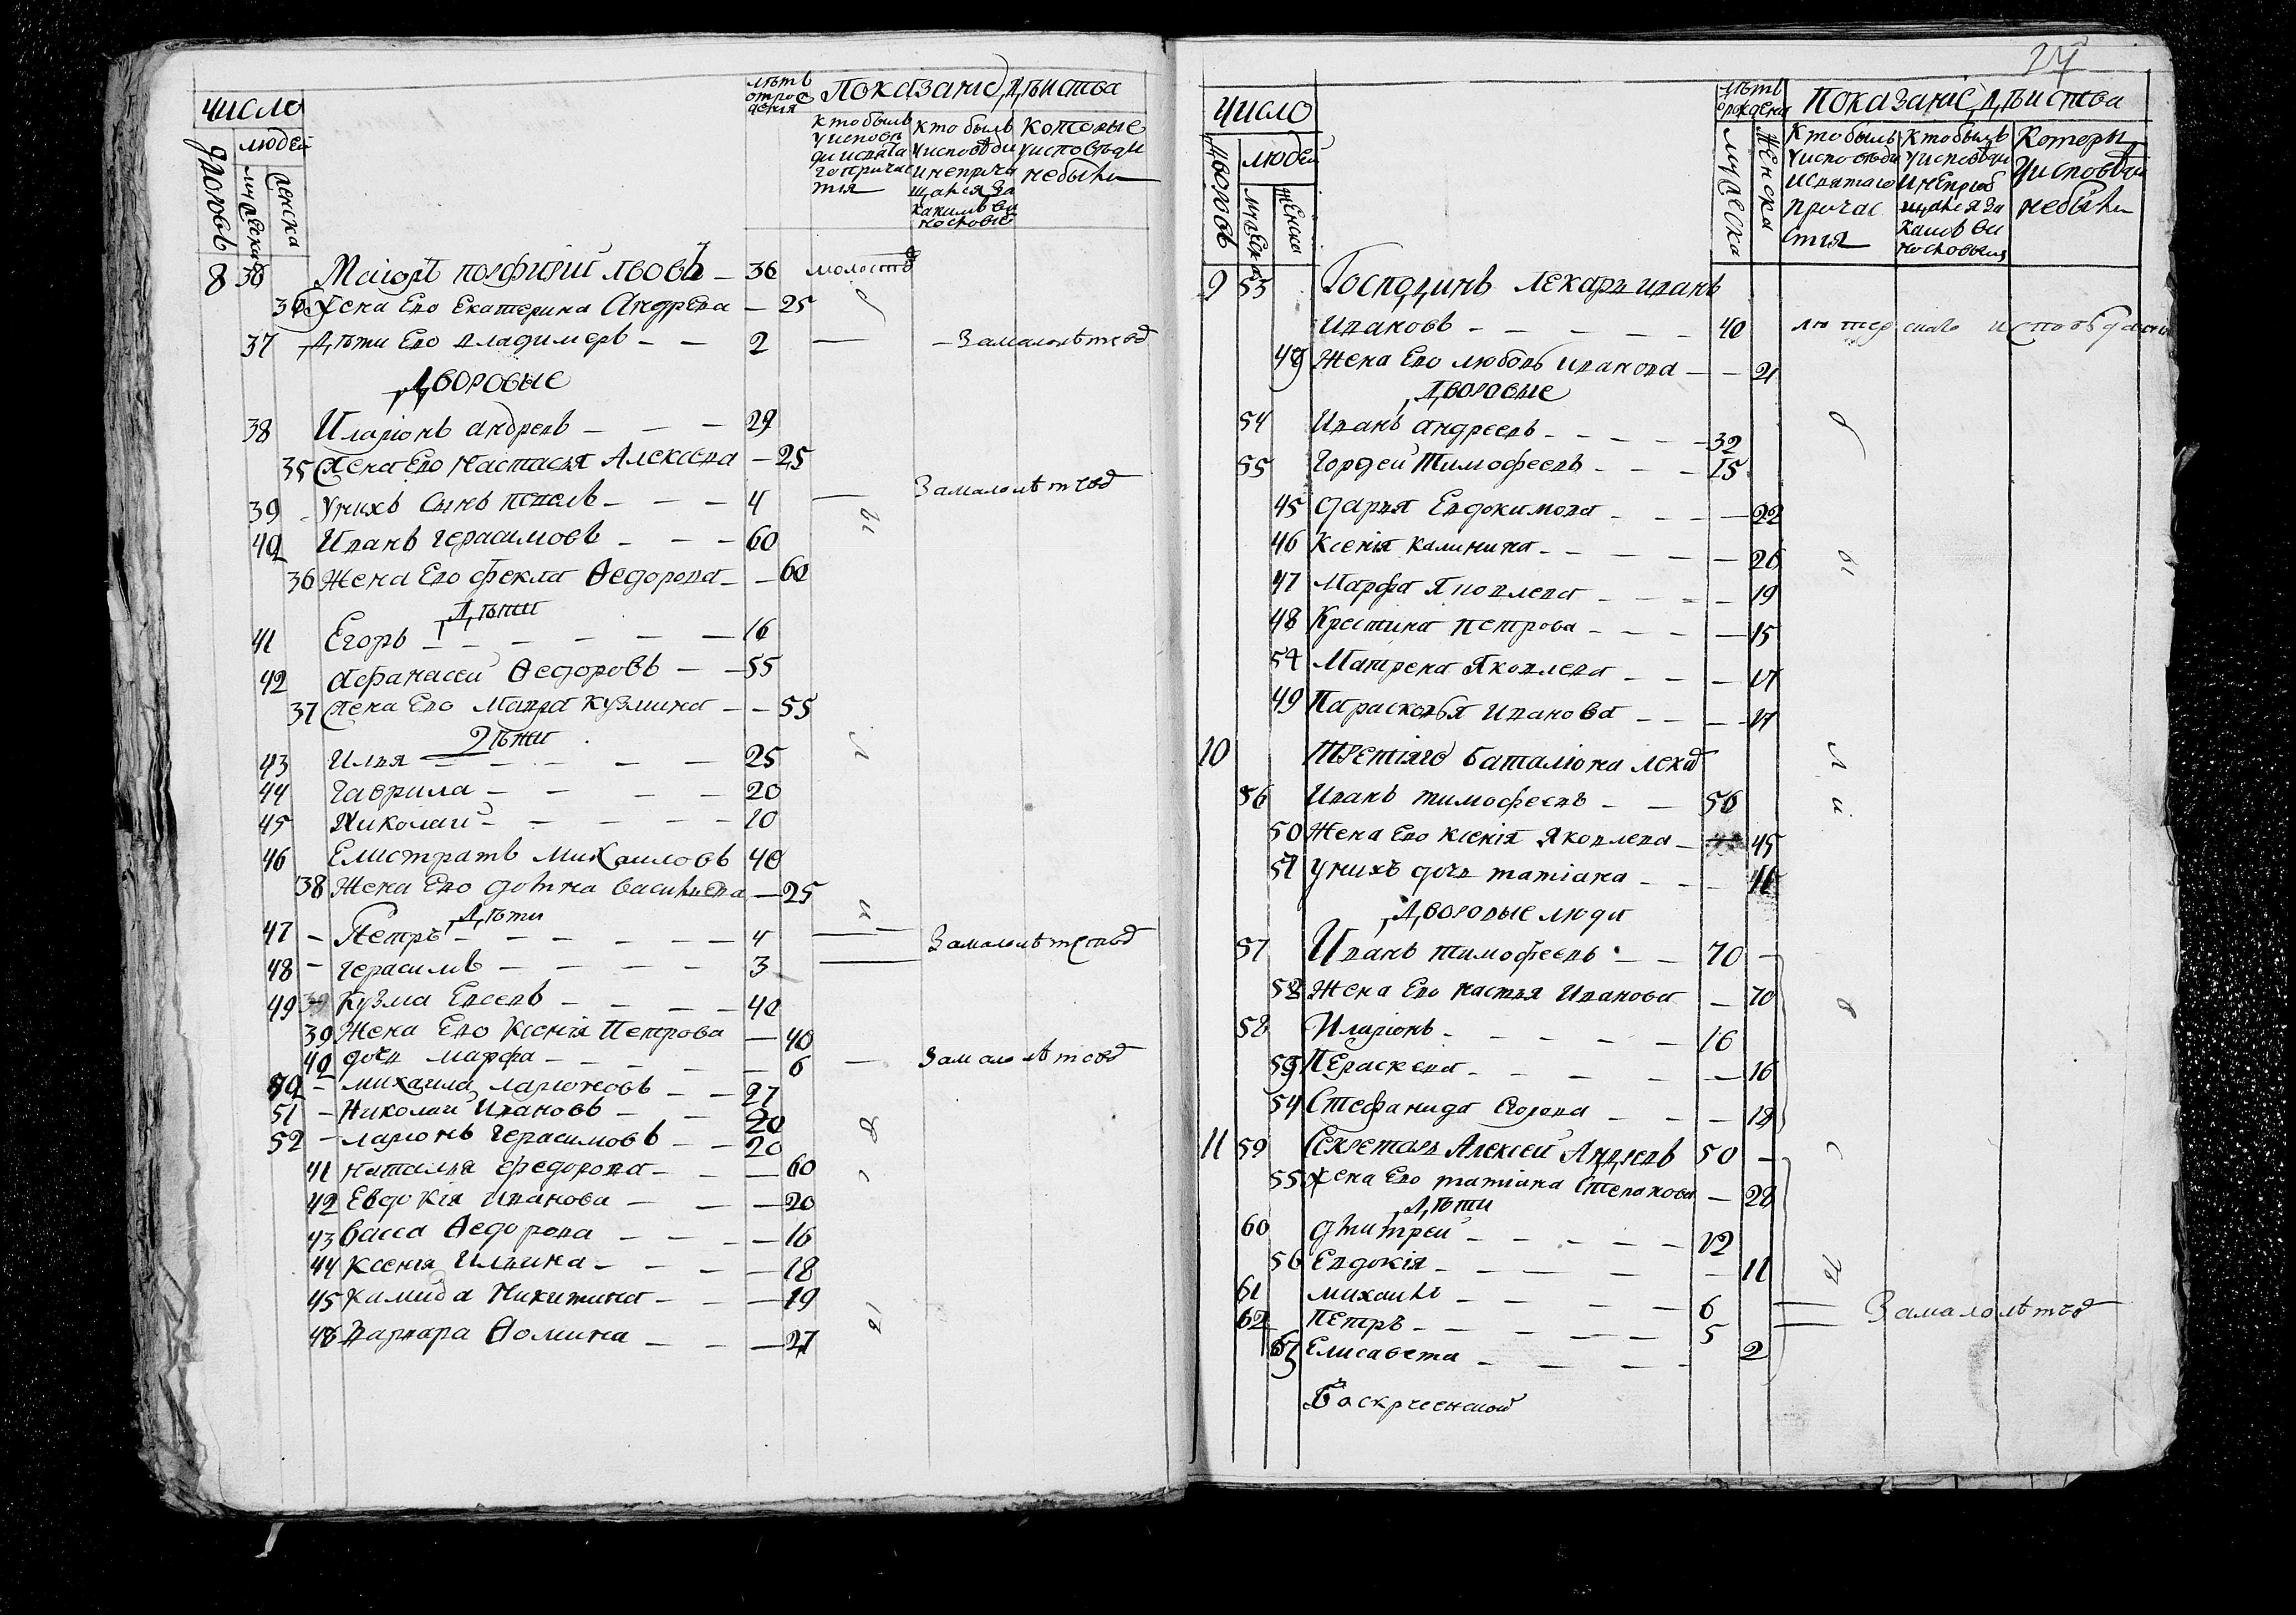 число
людей
дворовъ
мужеска
женска
лѣтъ
отрож
дения
показание дѣиства
кто былъ
у исповѣ
ди и свята
го причас
тия
кто былъ
у исповеди
и не приче
щался за
какимъ ви
нословие
которые
у исповѣди
не были
8 36 Маиоръ порфирий львовъ — 36
34 Жена Ево Екатерина Андрева — 25
37 Дѣти Ево владимеръ — — 2 — — За малолѣтсвѣ
Дворовые
38 Иларионъ андревъ — — — 29
35 Жена Ево Настасья Алексева — 25
39 У нихъ сынъ павелъ — — — 4 — За малолѣтсвѣ
40 Иванъ герасимовъ — — — 60
36 Жена Ево фекла Ѳедорова — — 60
Дѣти
41 Егоръ — — — — — 16
42 Афанасеи Ѳедоровъ — — 55
37 Жена Ево Мавра кузмина — — 55
Дѣти
43 Илья — — — — — 25
44 Гаврила — — — — 20
45 Николаи — — — — — 10
46 Елистратъ михаиловъ 40
38 Жена Ево домна васильева — 25
Дѣти
47 — Петръ — — — — — — 4 — — За малолѣтствѣ
48 — герасимъ — — — — 3 —
49 — кузма Евсевъ — — — — 40
39 Жена Ево Ксения Петрова — 40
40 дочь марфа — — — — — 6 — За малолѣтсвѣ
50 — михаила ларионовъ — — 27
51 — Николаи Ивановъ — — 20
52 — ларионъ Герасимовъ — — 20
41 Наталья федорова — — — 60
42 Евдокия иванова — — — 20
43 васса Ѳедорова — — — — 16
44 ксения Ильина — — — — 18
45 Никитина — — — 19
46 варвара Ѳомина — — — 27
и
л
и
в
с
ѣ
число
людей
дворовъ
мужеска
женска
лѣтъ
мужеска
женска
Показание дѣиства
Кто былъ
у исповѣди
и святаго
причас
тия
Кто былъ
у исповѣди
и не приоб
щался за
каким ви
нословиям
Которы
у исповеди
не были
9 53 Господинъ лекарь иванъ
Ивановъ — — — — — 40 лютерскаго исповѣдания
Жена Ево любовь иванова — — 21
Дворовые
54 Иванъ андреевъ — — — — — 32
55 Гордеи Тимофеевъ — — — 15
45 дарья Евдокимова — — — — 22
46 Ксения калинина — — — — — 26
47 Марфа Яковлева — — — — 19
48 Крестина петрова — — — — 15
Матрена Яковлева — — — 17
49 Парасковья иванова — — — — 17
10 Третияго баталиона
56 Иванъ тимофеевъ — — 56
50 Жена Ево ксения Яковлева — 45
51 У нихъ дочь татиана — — —
Дворовые люди
57 Иванъ тимофеевъ — — 70 —
52 Жена Ево настья Иванова — 70
58 Иларионъ — — — — — 16
53 Параскева — — — — — 16
54 Стефанида Егорова — — — 18
11 59 Секретарь Алексеи Андревъ 50 —
55 Жена Ево татиана Степанова — 28
Дѣти
60 дмитреи — — — — — 12
56 Евдокия — — — — — 11
61 михаилъ — — — — 6 — За малолѣтсвѣ
62 петръ — — — — — — 5 —
57 Елисавета — — — — 2
л
и
в
с
ѣ
Воскресенской